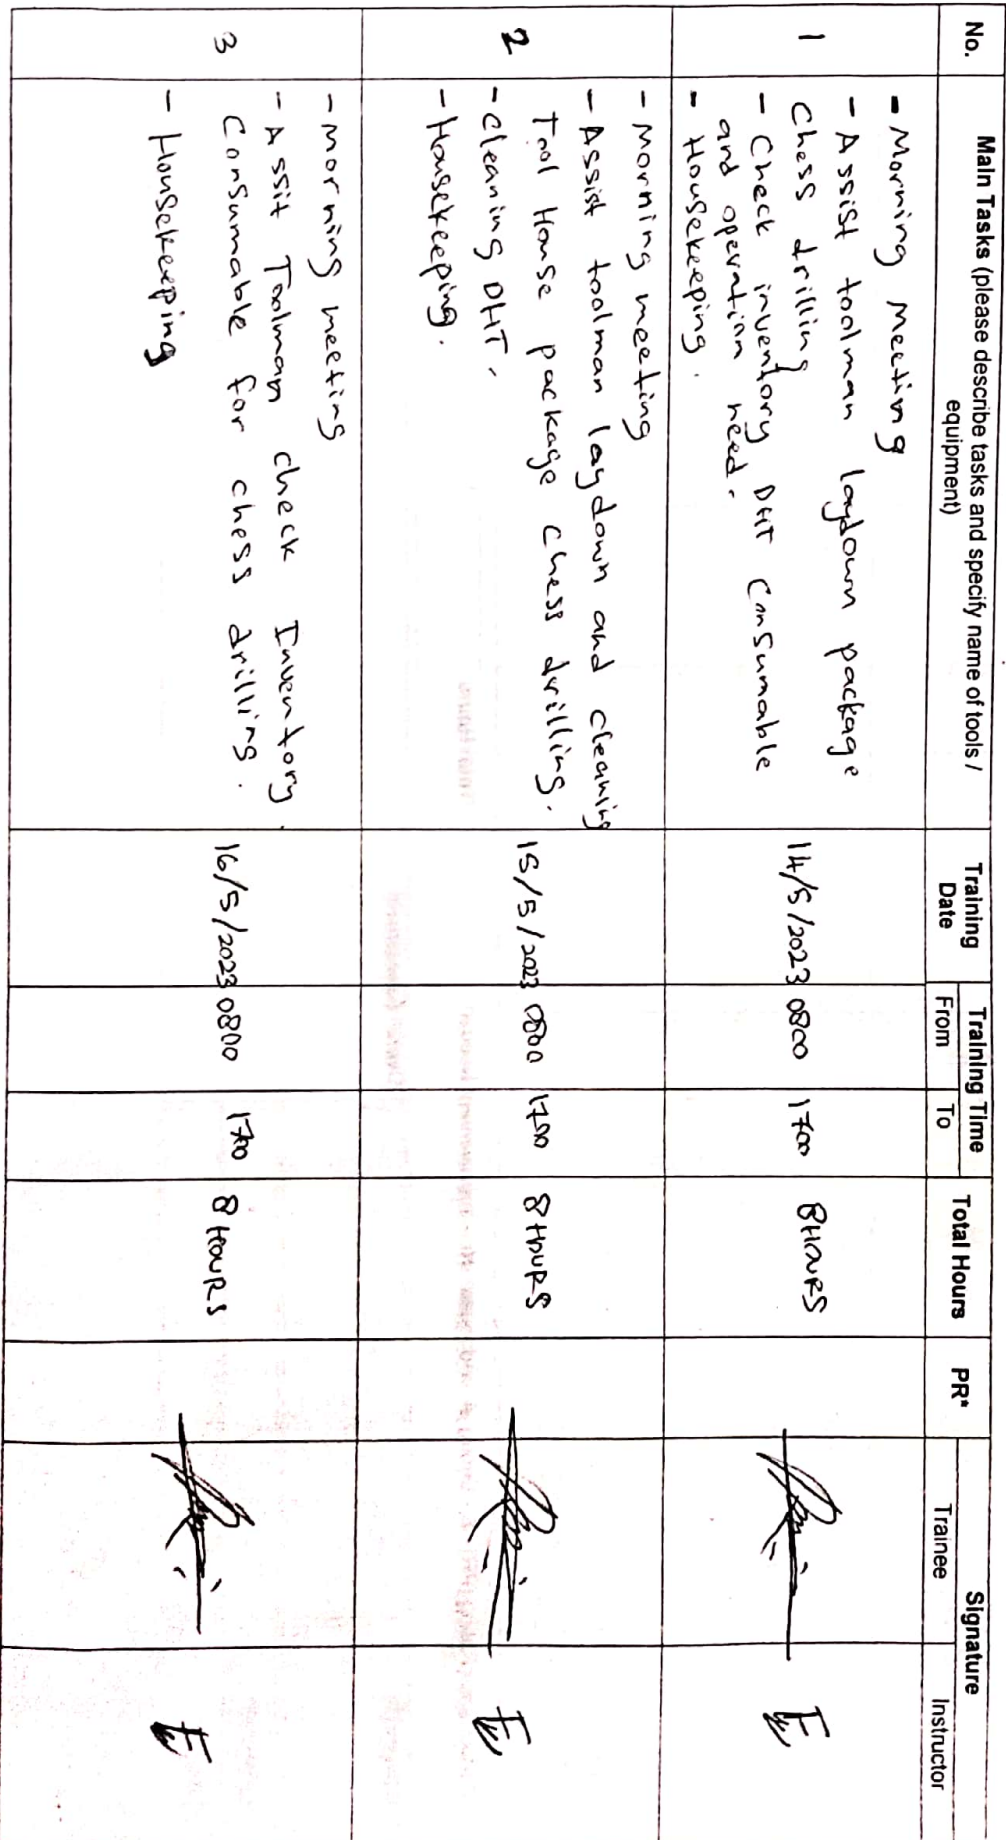 No.
Main Tasks (please describe tasks and specify name of tools /
equipment)
Training
Date
Training Time
From
To
Total Hours
PR*
Signature
Trainee
Instructor
1
- Morning Meeting
- Assist toolman laydown package
Chess drilling
- Check inventory DHT Consumable
and operation need.
- Housekeeping.
14/5/2023
0800
1700
8 HOURS
2
- Morning meeting
- Assist toolman laydown and cleaning
Tool House package Chess drilling.
- Cleaning DHT.
- Housekeeping.
15/5/2023
0800
1700
8 HOURS
3
- Morning meeting
- Assit Toolman check Inventory
Consumable for chess drilling.
- Housekeeping
16/5/2023
0800
1700
8 HOURS